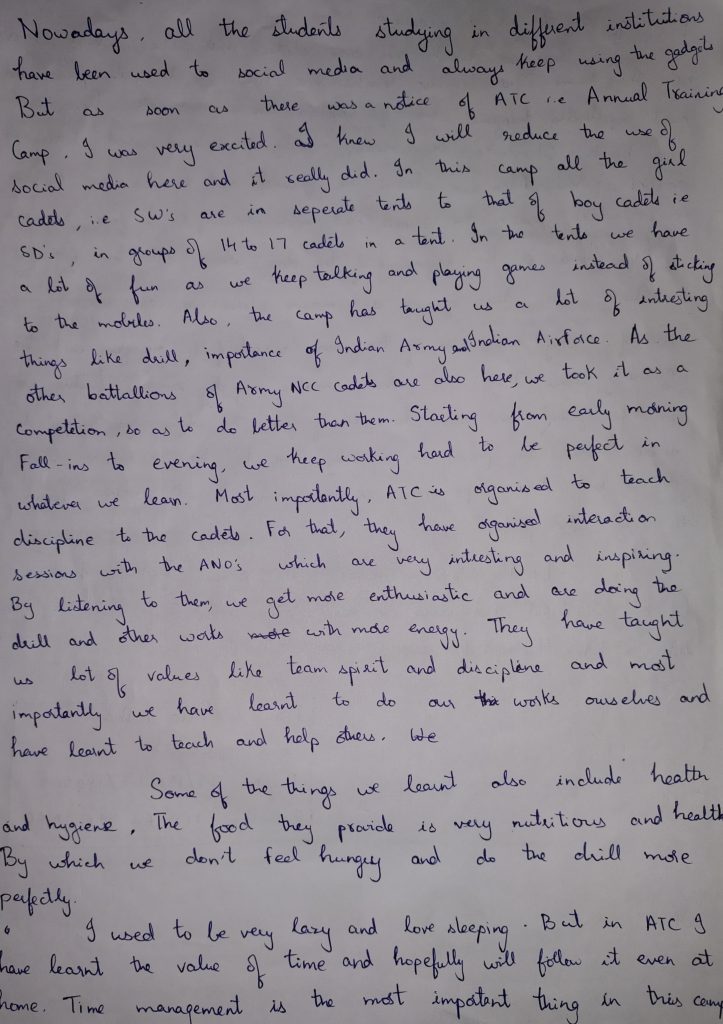 Nowadays, all the students studying in different institutions
have been used to social media and always keep using the gadgets
But as soon as there was a notice of ATC i.e Annual Training
Camp. I was very excited. I knew I will reduce the use of
social media here and it really did. In this camp all the girl
cadets, i.e SW's are in seperate tents to that of boy cadets i.e
SD's, in groups of 14 to 17 cadets in a tent. In the tents we have
a lot of fun as we keep talking and playing games instead of sticking
to the mobiles. Also, the camp has taught us a lot of intresting
things like drill, importance of Indian Army and Indian Airforce. As the
other battallions of Army NCC cadets are also here, we took it as a
competition, so as to do better than them. Starting from early morning
Fall-ins to evening, we keep working hard to be perfect in
whatever we learn. Most importantly, ATC is organised to teach
discipline to the cadets. For that, they have organised interaction
sessions with the ANO's which are very intresting and inspiring.
By listening to them, we get more enthusiastic and are doing the
drill and other works more with more energy. They have taught
us lot of values like team spirit and discipline and most
importantly we have learnt to do our works ourselves and
have learnt to teach and help others. We
Some of the things we learnt also include health
and hygiene. The food they provide is very nutritious and health
By which we don't feel hungry and do the drill more
perfectly.
I used to be very lazy and love sleeping. But in ATC I
have learnt the value of time and hopefully will follow it even at
home. Time management is the most important thing in this camp